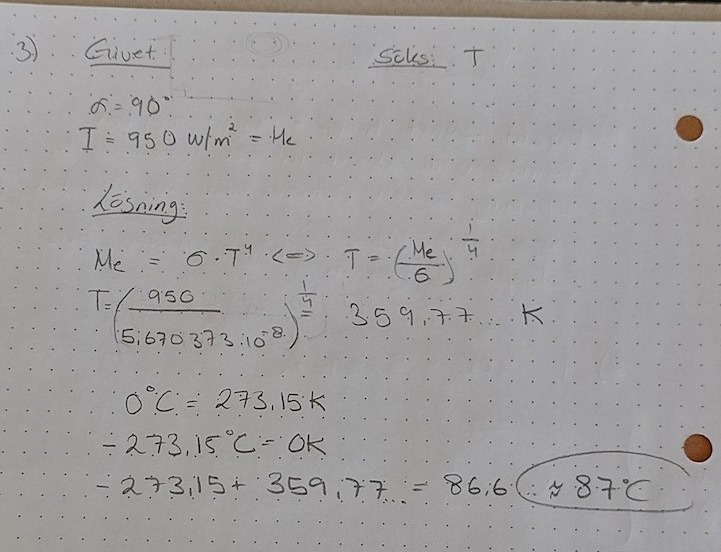 3) Givet: Söks: T
α = 90°
I = 950 W/m² = Me
Lösning:
Me = σ · T⁴ <=> T = (Me/σ)^1/4
T = (950/5,670373·10⁻⁸)^1/4 = 359,77... K
0°C = 273,15K
-273,15°C = 0K
-273,15 + 359,77... = 86,6... ≈ 87°C